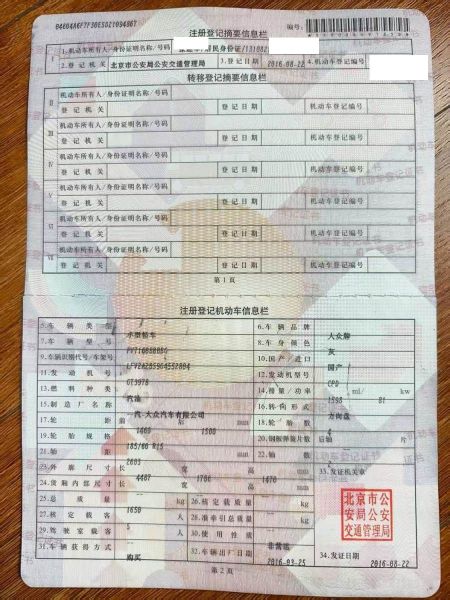 注册登记摘要信息栏
编号:
I
1.机动车所有人/身份证明名称/号码 居民身份证/
2.登记机关 北京市公安局公安交通管理局 3.登记日期 2016-08-22 4.机动车登记编号
转移登记摘要信息栏
II
机动车所有人/身份证明名称/号码
登记机关 登记日期 机动车登记编号
III
机动车所有人/身份证明名称/号码
登记机关 登记日期 机动车登记编号
IV
机动车所有人/身份证明名称/号码
登记机关 登记日期 机动车登记编号
V
机动车所有人/身份证明名称/号码
登记机关 登记日期 机动车登记编号
VI
机动车所有人/身份证明名称/号码
登记机关 登记日期 机动车登记编号
VII
机动车所有人/身份证明名称/号码
登记机关 登记日期 机动车登记编号
第1页
注册登记机动车信息栏
5.车辆类型 小型轿车 6.车辆品牌 大众牌
7.车辆型号 8.车身颜色 灰
9.车辆识别代号/车架号 10.国产/进口 国产
11.发动机号 12.发动机型号 CPD
13.燃料种类 汽油 14.排量/功率 1598 ml/ 81 kw
15.制造厂名称 一汽-大众汽车有限公司 16.转向形式 方向盘
17.轮距 前 1460 后 1500 mm 18.轮胎数 4
19.轮胎规格 185/60 R15 20.钢板弹簧片数 后轴 片
21.轴距 2603 mm 22.轴数 2
23.外廓尺寸 长 4467 宽 1706 高 1470 mm
24.货厢内部尺寸 长 宽 高 mm
33.发证机关章
北京市公安局公安交通管理局
25.总质量 1650 kg 26.核定载质量 kg
27.核定载客 5 人 28.准牵引总质量 kg
29.驾驶室载客 人 30.使用性质 非营运
31.车辆获得方式 购买 32.车辆出厂日期 2016-03-25
34.发证日期
2016-08-22
第2页